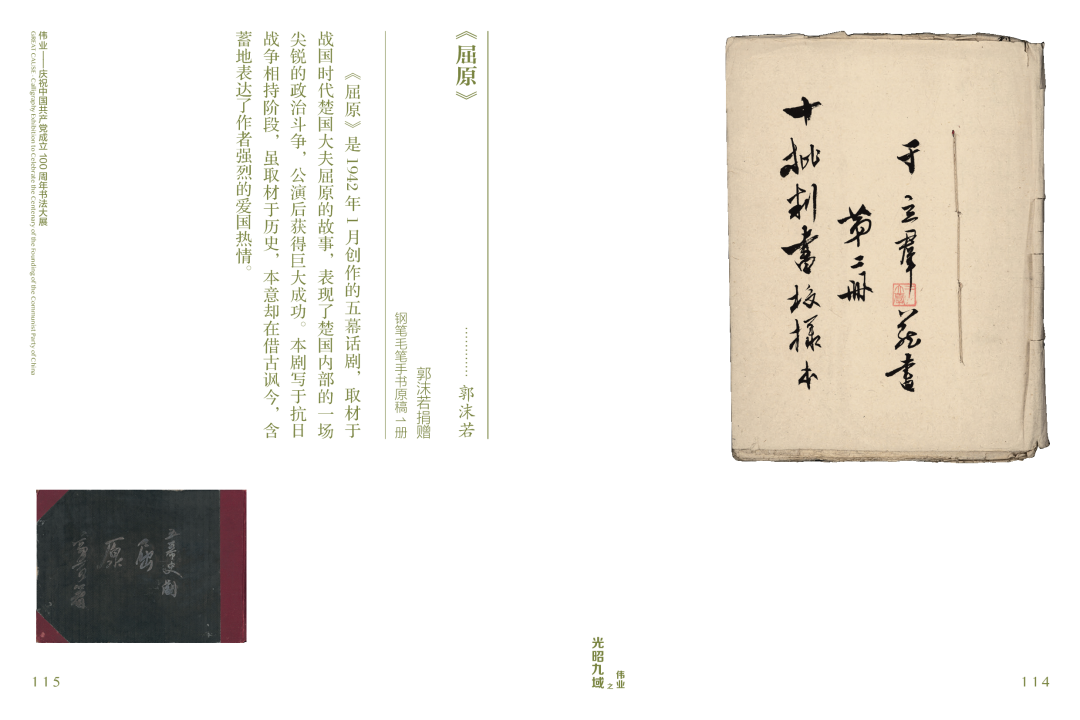 于立群藏書
第二冊
十批判書校樣本
114
光昭九域之伟业
《屈原》
…………郭沫若
郭沫若捐赠
钢笔毛笔手书原稿 1 册
《屈原》是 1942 年 1 月创作的五幕话剧，取材于
战国时代楚国大夫屈原的故事，表现了楚国内部的一场
尖锐的政治斗争，公演后获得巨大成功。本剧写于抗日
战争相持阶段，虽取材于历史，本意却在借古讽今，含
蓄地表达了作者强烈的爱国热情。
五幕史劇
屈
原
伟业——庆祝中国共产党成立 100 周年书法大展
GREAT CAUSE - Calligraphy Exhibition to Celebrate the Centenary of the Founding of the Communist Party of China
115